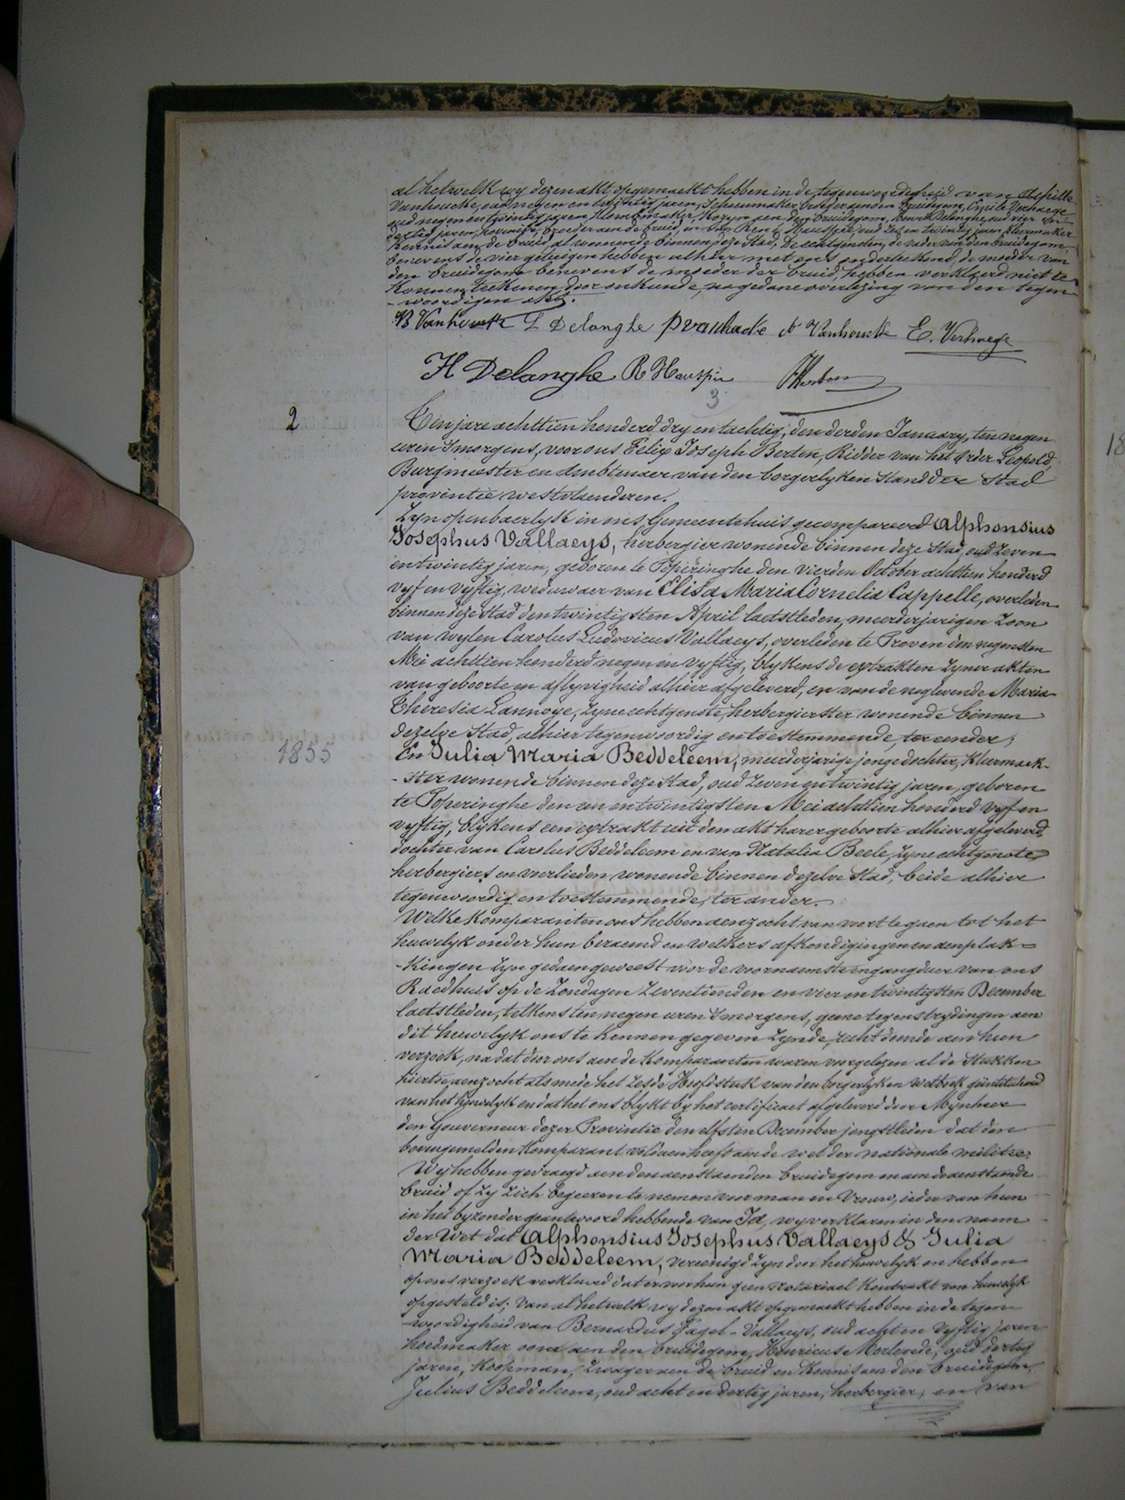 al hetwelk wy dezen akt opgemaekt hebben in de tegenwoordigheid van Achille
Vanhoucke, oud negen en twintig jaren, Schoenmaker, broeder aen den bruidegom, Cyrille Verhaege
oud negen en twintig jaren, Blokmaker, Kozyn aen den bruidegom, Henri Delanghe, oud vier en
dertig jaren, broeder aen de bruid, en van René Hauspie, oud zes en twintig jaren, kleermaker
Kennis aen de bruid, al woonende binnen deze Stad, De echtgenooten, de vader van den bruidegom,
benevens de vier getuigen hebben alhier met ons onderteekend, de moeder van
den bruidegom benevens de moeder der bruid, hebben verklaerd niet te
Konnen teekenen, door onkunde, na gedane overlezing van den tegen-
-woordigen akt.
B Vanhoucke L Delanghe A Vanhoucke E. Verhaege
H Delanghe R Hauspie
3
2
Ten jare achttien honderd dry en tachtig, den derden January, ten negen
uren 's morgens, voor ons Felix Joseph Berten, Ridder van het Order Leopold
Burgmeester en Ambtenaer van den borgerlyken Stand der Stad
provintie westvlaenderen.
Zyn openbaerlyk in ons Gemeentehuis gecompareerd Alphonsius
Josephus Vallaeys, herbergier wonende binnen deze Stad, oud zeven
en twintig jaren, geboren te Poperinghe den vierden October achttien honderd
vyf en vyftig, weduwaer van Elisa Maria Cornelia Cappelle, overleden
binnen deze stad den twintigsten April laetstleden, meerderjarigen Zoon
van wylen Carolus Ludovicus Vallaeys, overleden te Proven den negensten
Mei achttien honderd negen en vyftig, blykens de extrakten zyner akten
van geboorte en aflyvigheid alhier afgeleverd, en van de noglevende Maria
Theresia Lannoye, zyne echtgenote, herbergierster wonende binnen
dezelve Stad, alhier tegenwoordig en toestemmende, ter eender;
1855
En Julia Maria Beddeleem, meerderjarige jonge dochter, Kleermaek-
-ster wonende binnen deze Stad, oud zeven en twintig jaren, geboren
te Poperinghe den een en twintigsten Mei achttien honderd vyf en
vyftig, blykens een extrakt uit den akt harer geboorte alhier afgeleverd,
dochter van Carolus Beddeleem en van Natalia Beele, zyne echtgenote
herbergiers en voerlieden, wonende binnen dezelve Stad, beide alhier
tegenwoordig en toestemmende, ter ander.
Welke Komparanten ons hebben aenzocht van voort te gaen tot het
huwelyk onder hun beraemd en welkers afkondigingen en aenplak-
-kingen zyn gedaen geweest voor de voornaemste ingangdeur van ons
Raedhuis op de Zondagen zeventienden en vier en twintigsten December
laetstleden, telkens ten negen uren 's morgens, geene tegenstrydingen aen
dit huwelyk ons te Kennen gegeven zynde, recht doende aen hun
verzoek, na dat door ons aen de Komparanten waren voorgelezen al de Stukken
hiertoe aenzocht als mede het zesde Hoofdstuk van den borgerlyken Wetboek geïntituleerd
van het huwelyk en dat het ons blykt by het certificaet afgeleverd door Mynheer
den Gouverneur dezer Provintie den elfsten December jongstleden dat den
bovengemelden Komparant voldaen heeft aen de wet der nationale militie.
Wy hebben gevraegd aen den aenstaenden bruidegom en aen de aenstaende
bruid of zy zich begeeren te nemen voor man en Vrouw, ieder van hun
in het byzonder geantwoord hebbende van Ja, wy verklaren in den naem
der Wet dat Alphonsius Josephus Vallaeys & Julia
Maria Beddeleem, vereenigd zyn door het huwelyk en hebben
op ons verzoek verklaerd dat er voor hun geen notariael Kontrakt van huwelyk
opgesteld is; van al hetwelk wy dezen akt opgemaekt hebben in de tegen-
-woordigheid van Bernardus Vallaeys, oud acht en vyftig jaren
hoedmaker oom aen den bruidegom, Henricus Merlevede, oud dertig
jaren, Koopman, zwager aen de bruid en Kennis aen den bruidegom,
Julius Beddeleem, oud acht en dertig jaren, herbergier, en van
18